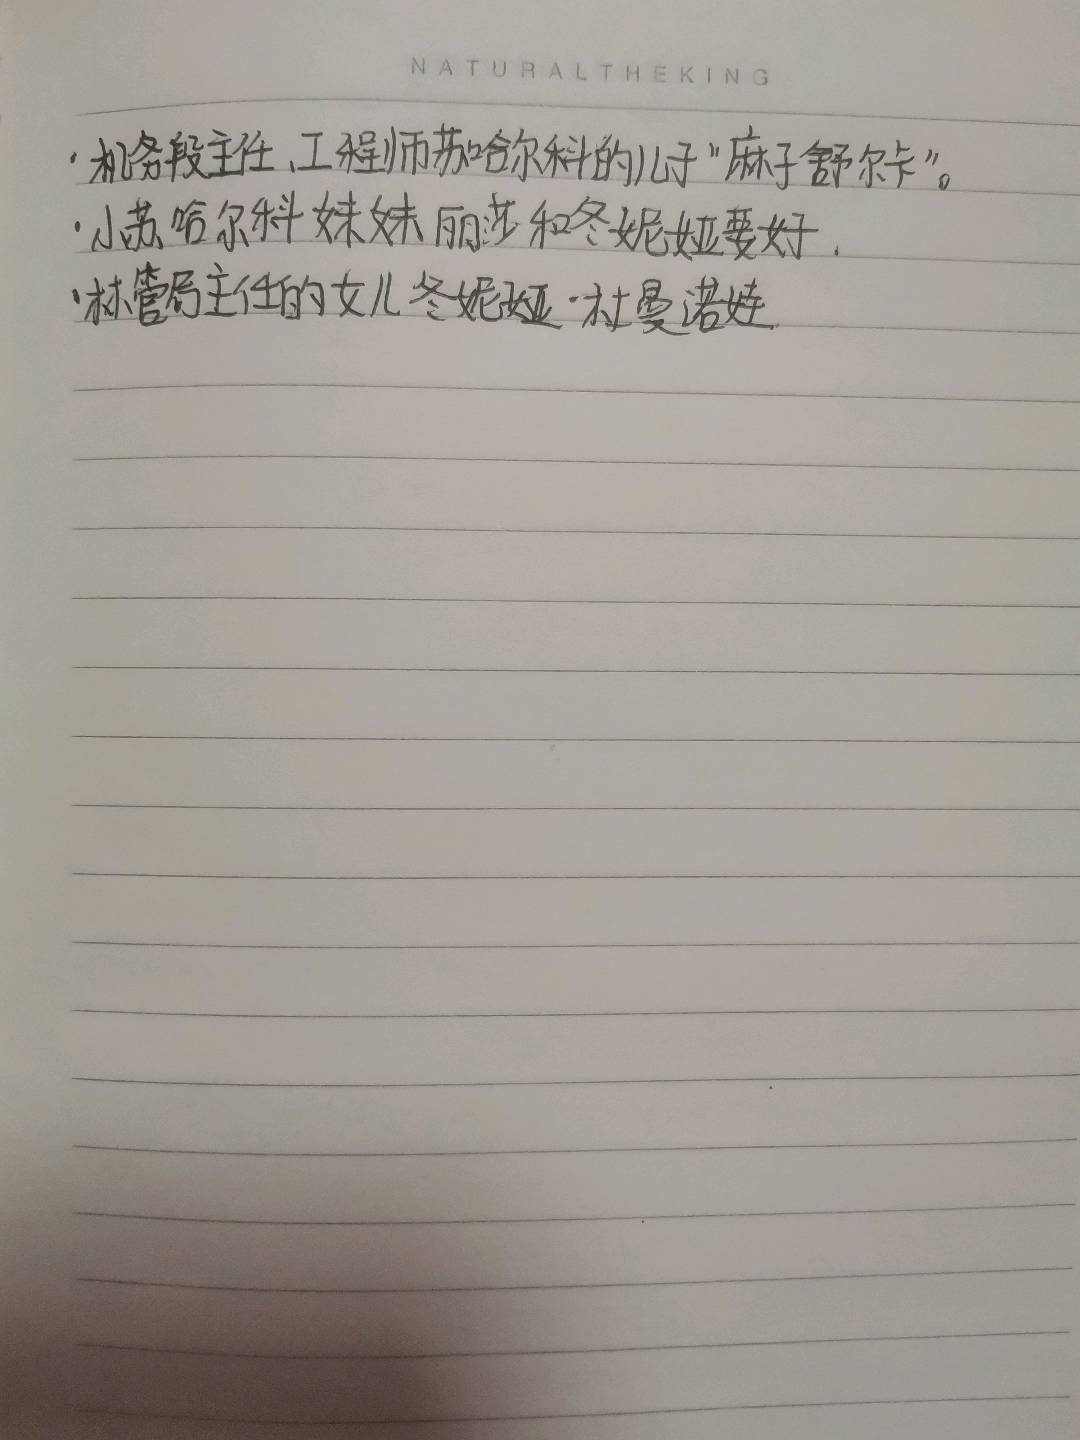 NATURALTHEKING
·机务段主任、工程师苏哈尔科的儿子“麻子舒尔卡”。
·小苏哈尔科妹妹丽莎和冬妮娅要好.
·林管局主任的女儿冬妮娅·杜曼诺娃